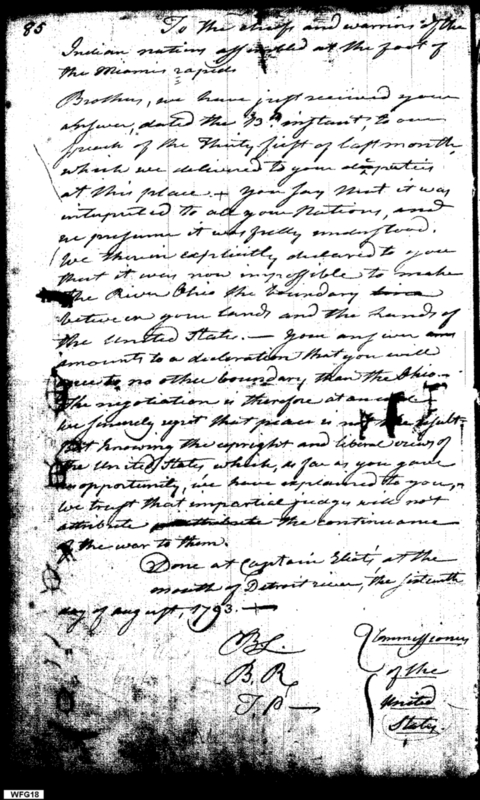 85
To the chiefs and warriors of the
Indian nations assembled at the foot of
the Miamis rapids
Brothers, we have just received your
answer, dated the 13th instant, to our
speech of the Thirty first of last month,
which we delivered to your deputies
at this place. You say that it was
interpreted to all your Nations, and
we presume it was fully understood.
We therein explicitly declared to you
that it was now impossible to make
the River Ohio the boundary
between your lands and the lands of
the United States. — Your answer
amounts to a declaration that you will
agree to no other boundary than the Ohio.
The negotiation is therefore at an end
we sincerely regret that peace is not the result
But knowing the upright and liberal views of
the United States which, as far as you gave
opportunity, we have explained to you,
we trust that impartial judges will not
attribute the continuance
of the war to them.
Done at Captain Eliots, at the
mouth of Detroit river, the sixteenth
day of august, 1793. —
BL.
B. R
T. P —
Commissioners
of the
United
States.
WFG18